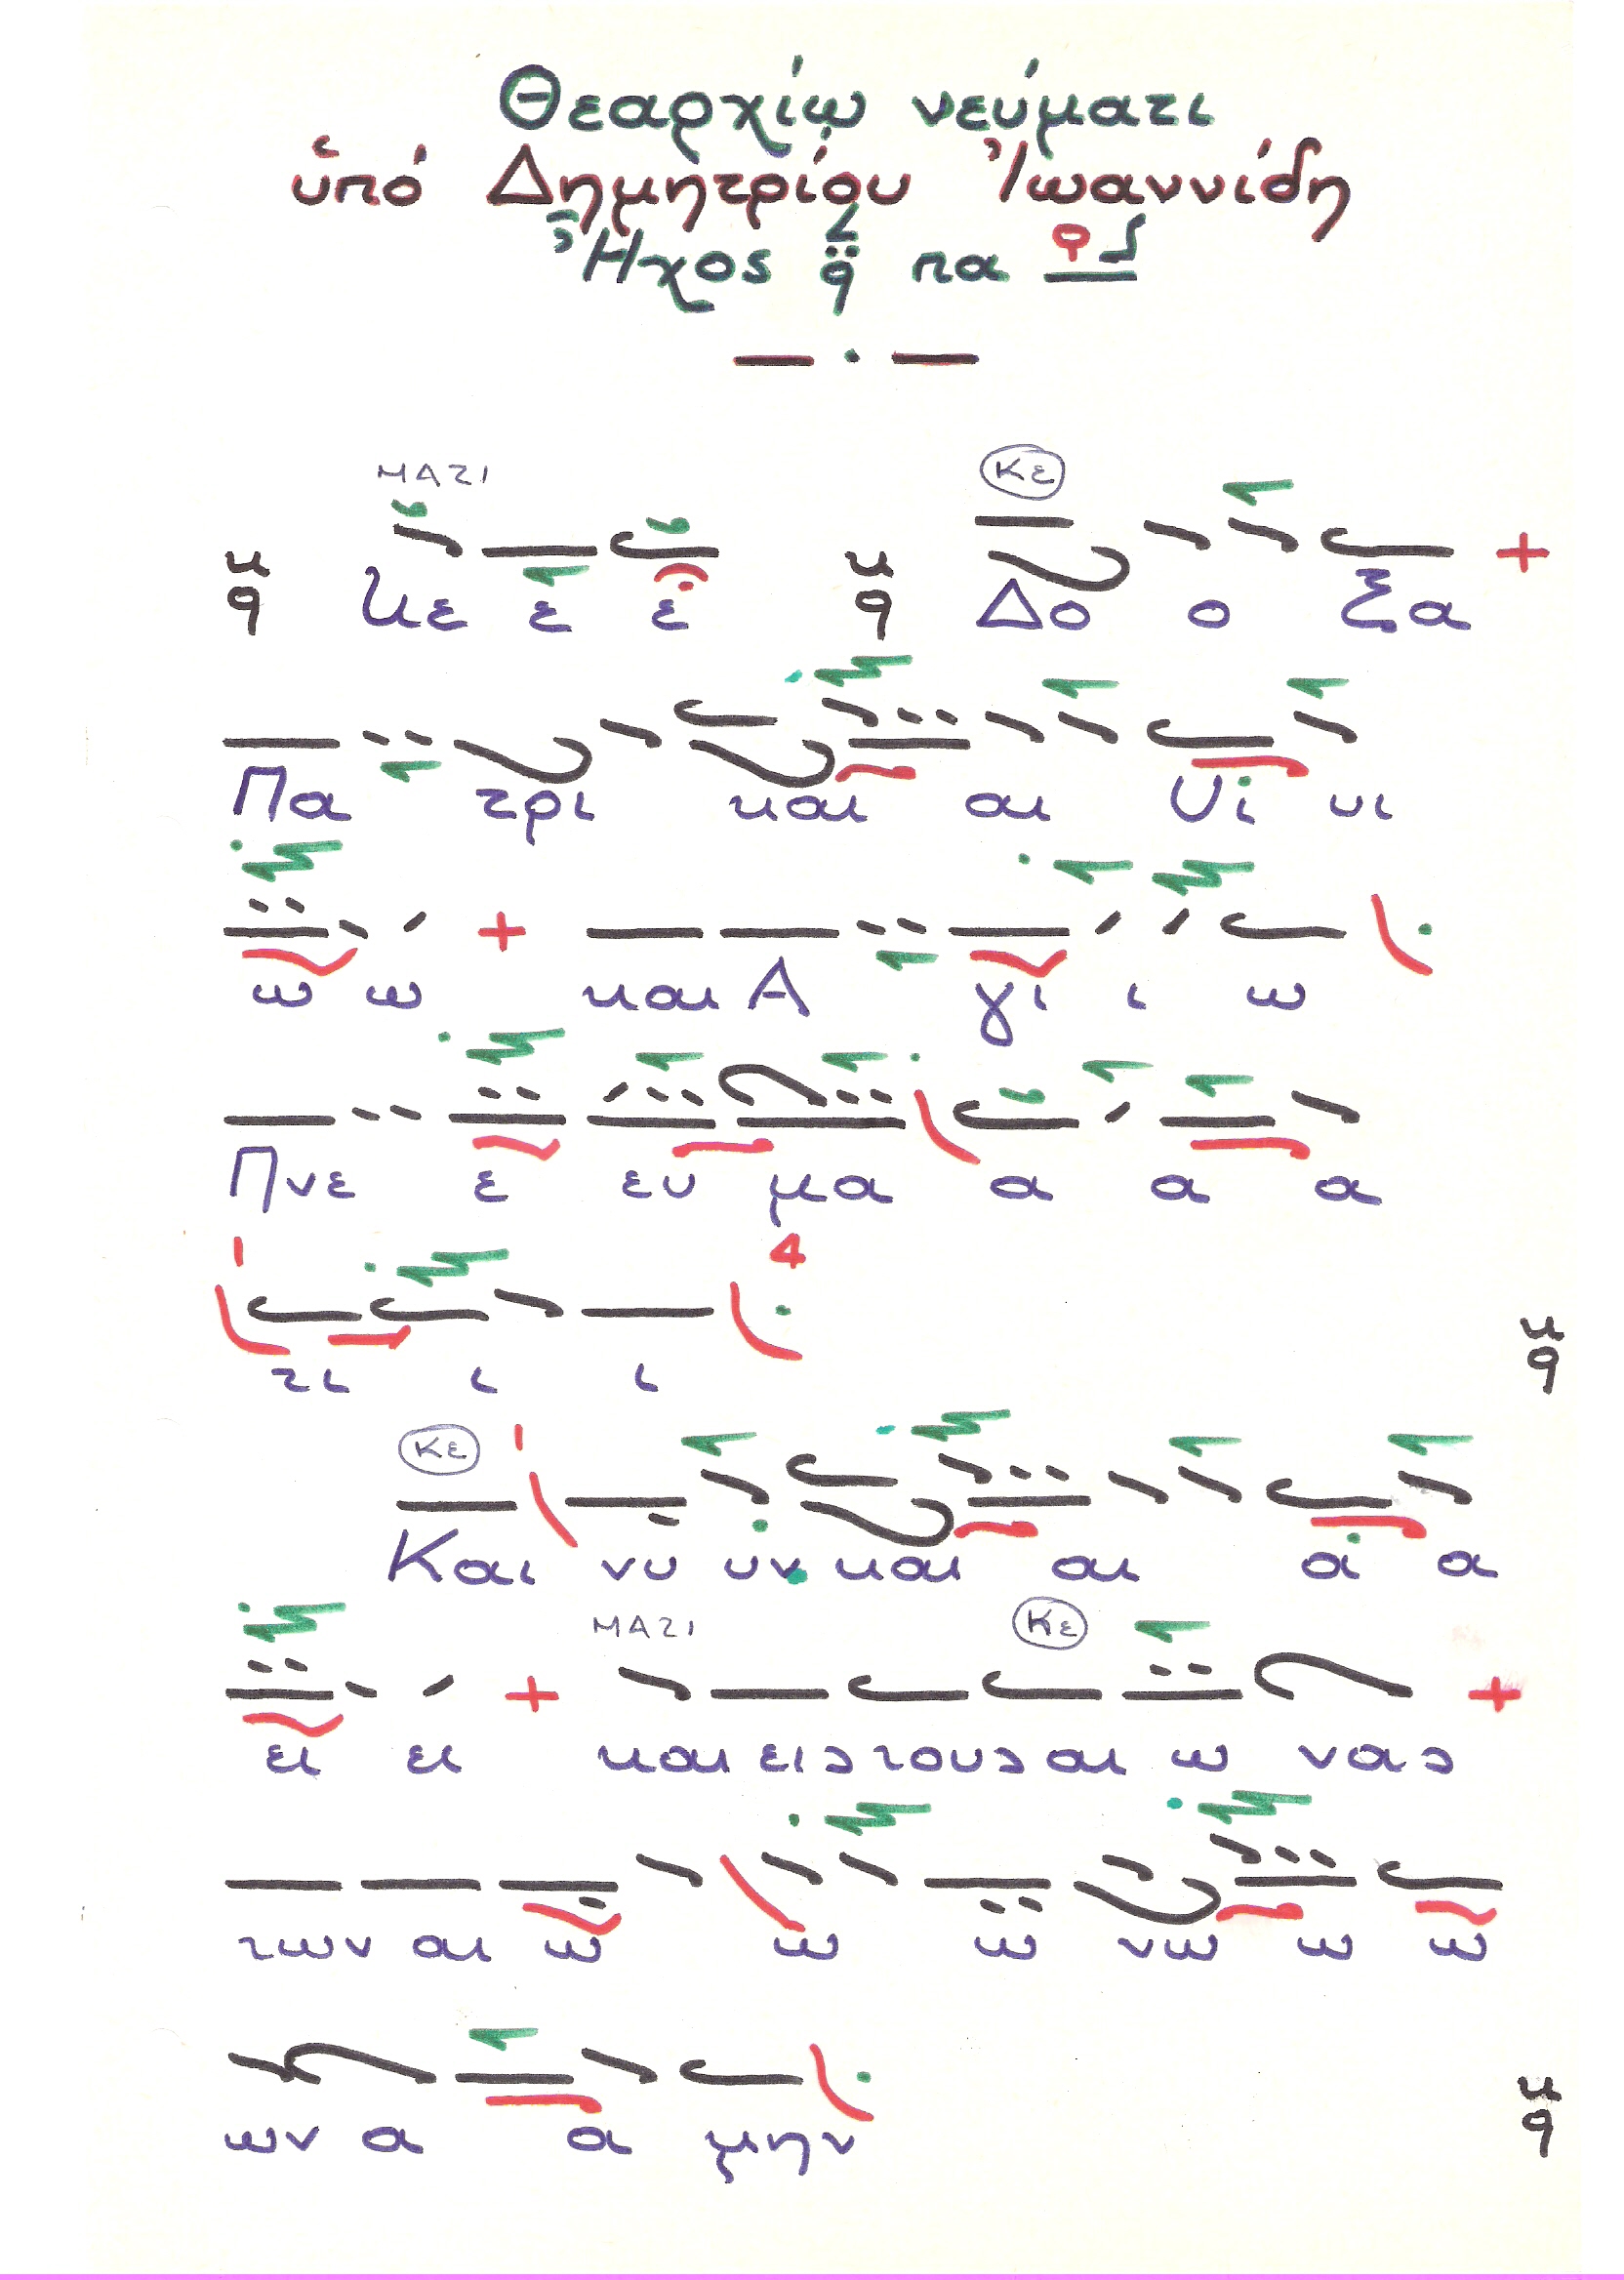 Θεαρχίῳ νεύματι
ὑπό Δημητρίου Ἰωαννίδη
Ἦχος q πα
ΜΑΖΙ Κε
κ q Κε ε ε κ q Δο ο ξα
Πα τρι και αι Υι υι
ω ω και Α γι ι ω
Πνε ε ευ μα α α α
1 4
τι ι ι κ q
Κε 1
Και νυ υν και αι α α
ΜΑΖΙ Κε
ει ει και εις τους αι ω νας
των αι ω ω ω νω ω ω
ων α α μην κ q